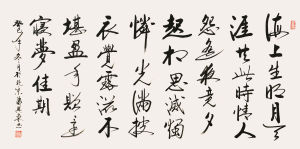 海上生明月天
涯共此時情人
怨遙夜竟夕
起相思滅燭
憐光滿披
衣覺露滋不
堪盈手贈還
寢夢佳期